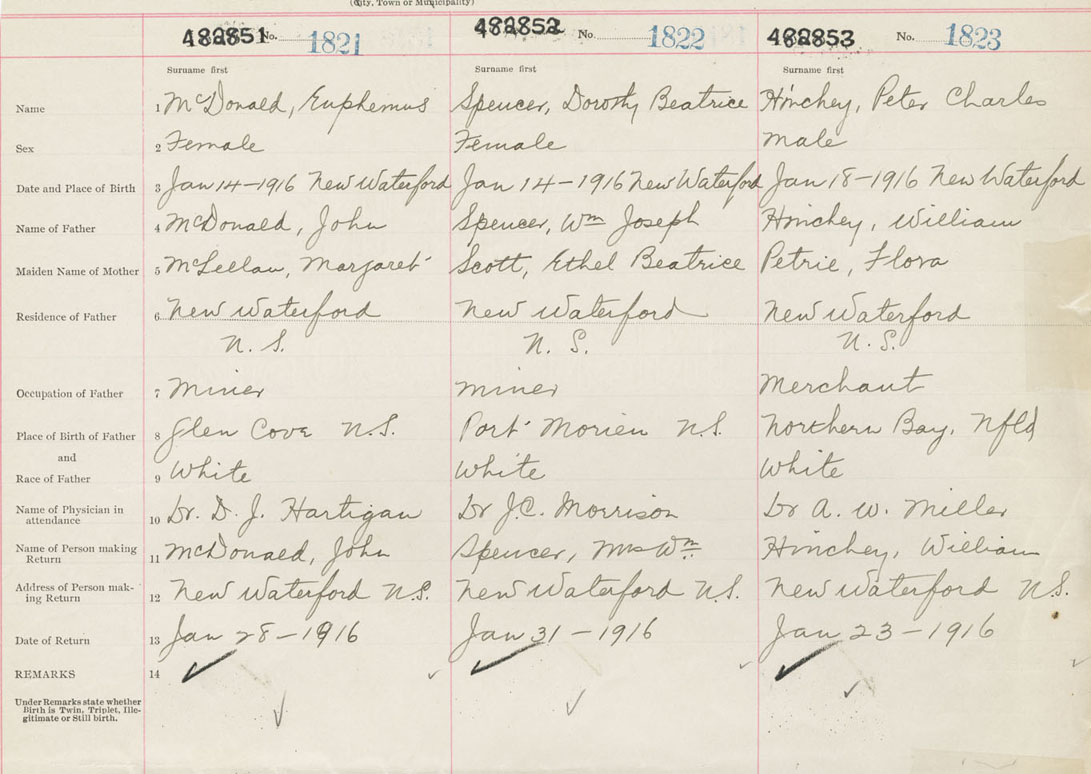 (City, Town or Municipality)
482851 No. 1821 482852 No. 1822 482853 No. 1823
Surname first Surname first Surname first
Name 1 McDonald, Euphemus Spencer, Dorothy Beatrice Hinchey, Peter Charles
Sex 2 Female Female male
Date and Place of Birth 3 Jan 14-1916 New Waterford Jan 14-1916 New Waterford Jan 18-1916 New Waterford
Name of Father 4 McDonald, John Spencer, Wm Joseph Hinchey, William
Maiden Name of Mother 5 McLellan, Margaret Scott, Ethel Beatrice Petrie, Flora
Residence of Father 6 New Waterford New Waterford New Waterford
N.S. N.S. N.S.
Occupation of Father 7 Miner miner Merchant
Place of Birth of Father 8 Glen Cove N.S. Port Morien N.S. Northern Bay, Nfld
and
Race of Father 9 White White White
Name of Physician in
attendance 10 Dr. D. J. Hartigan Dr J.C. Morrison Dr A. W. Miller
Name of Person making
Return 11 McDonald, John Spencer, Mrs Wm Hinchey, William
Address of Person mak-
ing Return 12 New Waterford N.S. New Waterford N.S. New Waterford N.S.
Date of Return 13 Jan 28-1916 Jan 31-1916 Jan 23-1916
REMARKS 14
Under Remarks state whether
Birth is Twin, Triplet, Ille-
gitimate or Still birth.